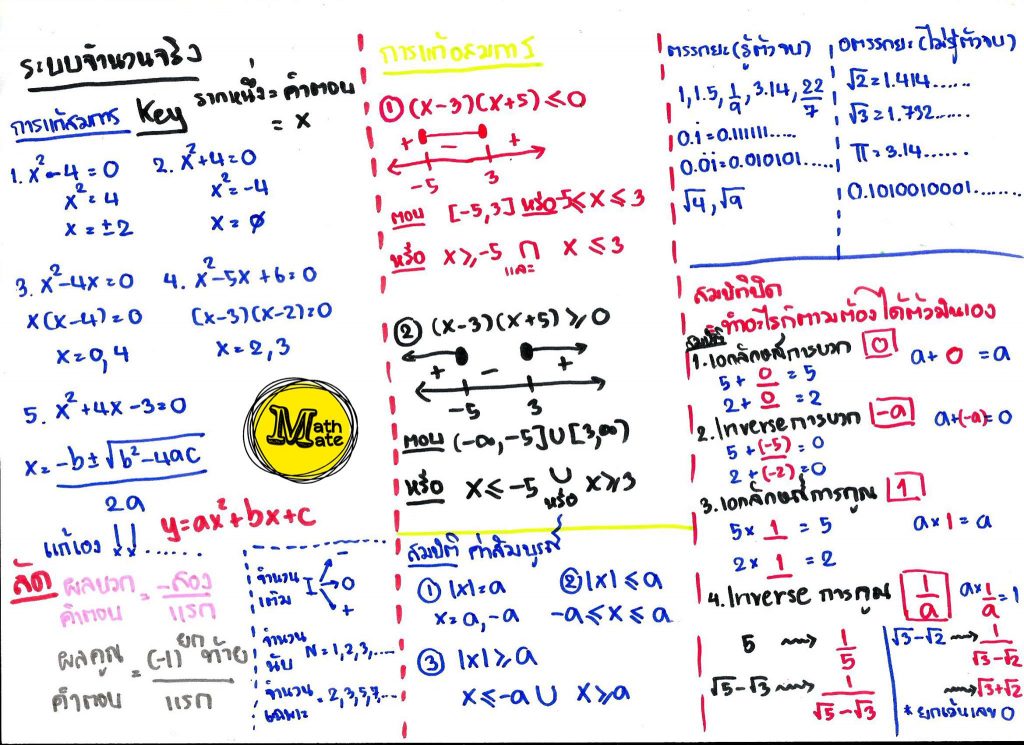 ระบบจำนวนจริง
การแก้สมการ Key รากหนึ่ง = คำตอบ
= x
1. x² - 4 = 0
x² = 4
x = ±2
2. x² + 4 = 0
x² = -4
x = ∅
3. x² - 4x = 0
x(x-4) = 0
x = 0, 4
4. x² - 5x + 6 = 0
(x-3)(x-2) = 0
x = 2, 3
5. x² + 4x - 3 = 0
x = -b ± √b² - 4ac
2a
แก้เอง ......
Math Mate
y = ax² + bx + c
ลัด
ผลบวกคำตอบ = -สอง/แรก
ผลคูณคำตอบ = (-1)ยกท้าย/แรก
จำนวนเต็ม I - 0 +
จำนวนนับ N = 1, 2, 3, ....
จำนวนเฉพาะ = 2, 3, 5, 7...
การแก้อสมการ
① (x-3)(x+5) ≤ 0
+ - +
-5 3
ตอบ [-5,3] หรือ -5 ≤ x ≤ 3
หรือ x ≥ -5 ∩ x ≤ 3
และ
② (x-3)(x+5) ≥ 0
+ - +
-5 3
ตอบ (-∞, -5] ∪ [3, ∞)
หรือ x ≤ -5 ∪ x ≥ 3
หรือ
สมบัติ ค่าสัมบูรณ์
① |x| = a
x = a, -a
② |x| ≤ a
-a ≤ x ≤ a
③ |x| ≥ a
x ≤ -a ∪ x ≥ a
ตรรกยะ (รู้ตัวจบ)
1, 1.5, 1/9, 3.14, 22/7
0.i = 0.111111.....
0.0i = 0.010101.....
√4, √9
อตรรกยะ (ไม่รู้ตัวจบ)
√2 = 1.414......
√3 = 1.732......
π = 3.14......
0.1010010001........
สมบัติปิด
ทำอะไรก็ตามต้องได้ตัวมันเอง
สมบัติ
1. เอกลักษณ์การบวก 0 a + 0 = a
5 + 0 = 5
2 + 0 = 2
2. Inverse การบวก -a a + (-a) = 0
5 + (-5) = 0
2 + (-2) = 0
3. เอกลักษณ์การคูณ 1
5 × 1 = 5 a × 1 = a
2 × 1 = 2
4. Inverse การคูณ 1/a a × 1/a = 1
5 ⇝ 1/5
√5-√3 ⇝ 1/√5-√3
√3-√2 ⇝ 1/√3-√2
⇝ √3+√2
* ยกเว้นเลข 0